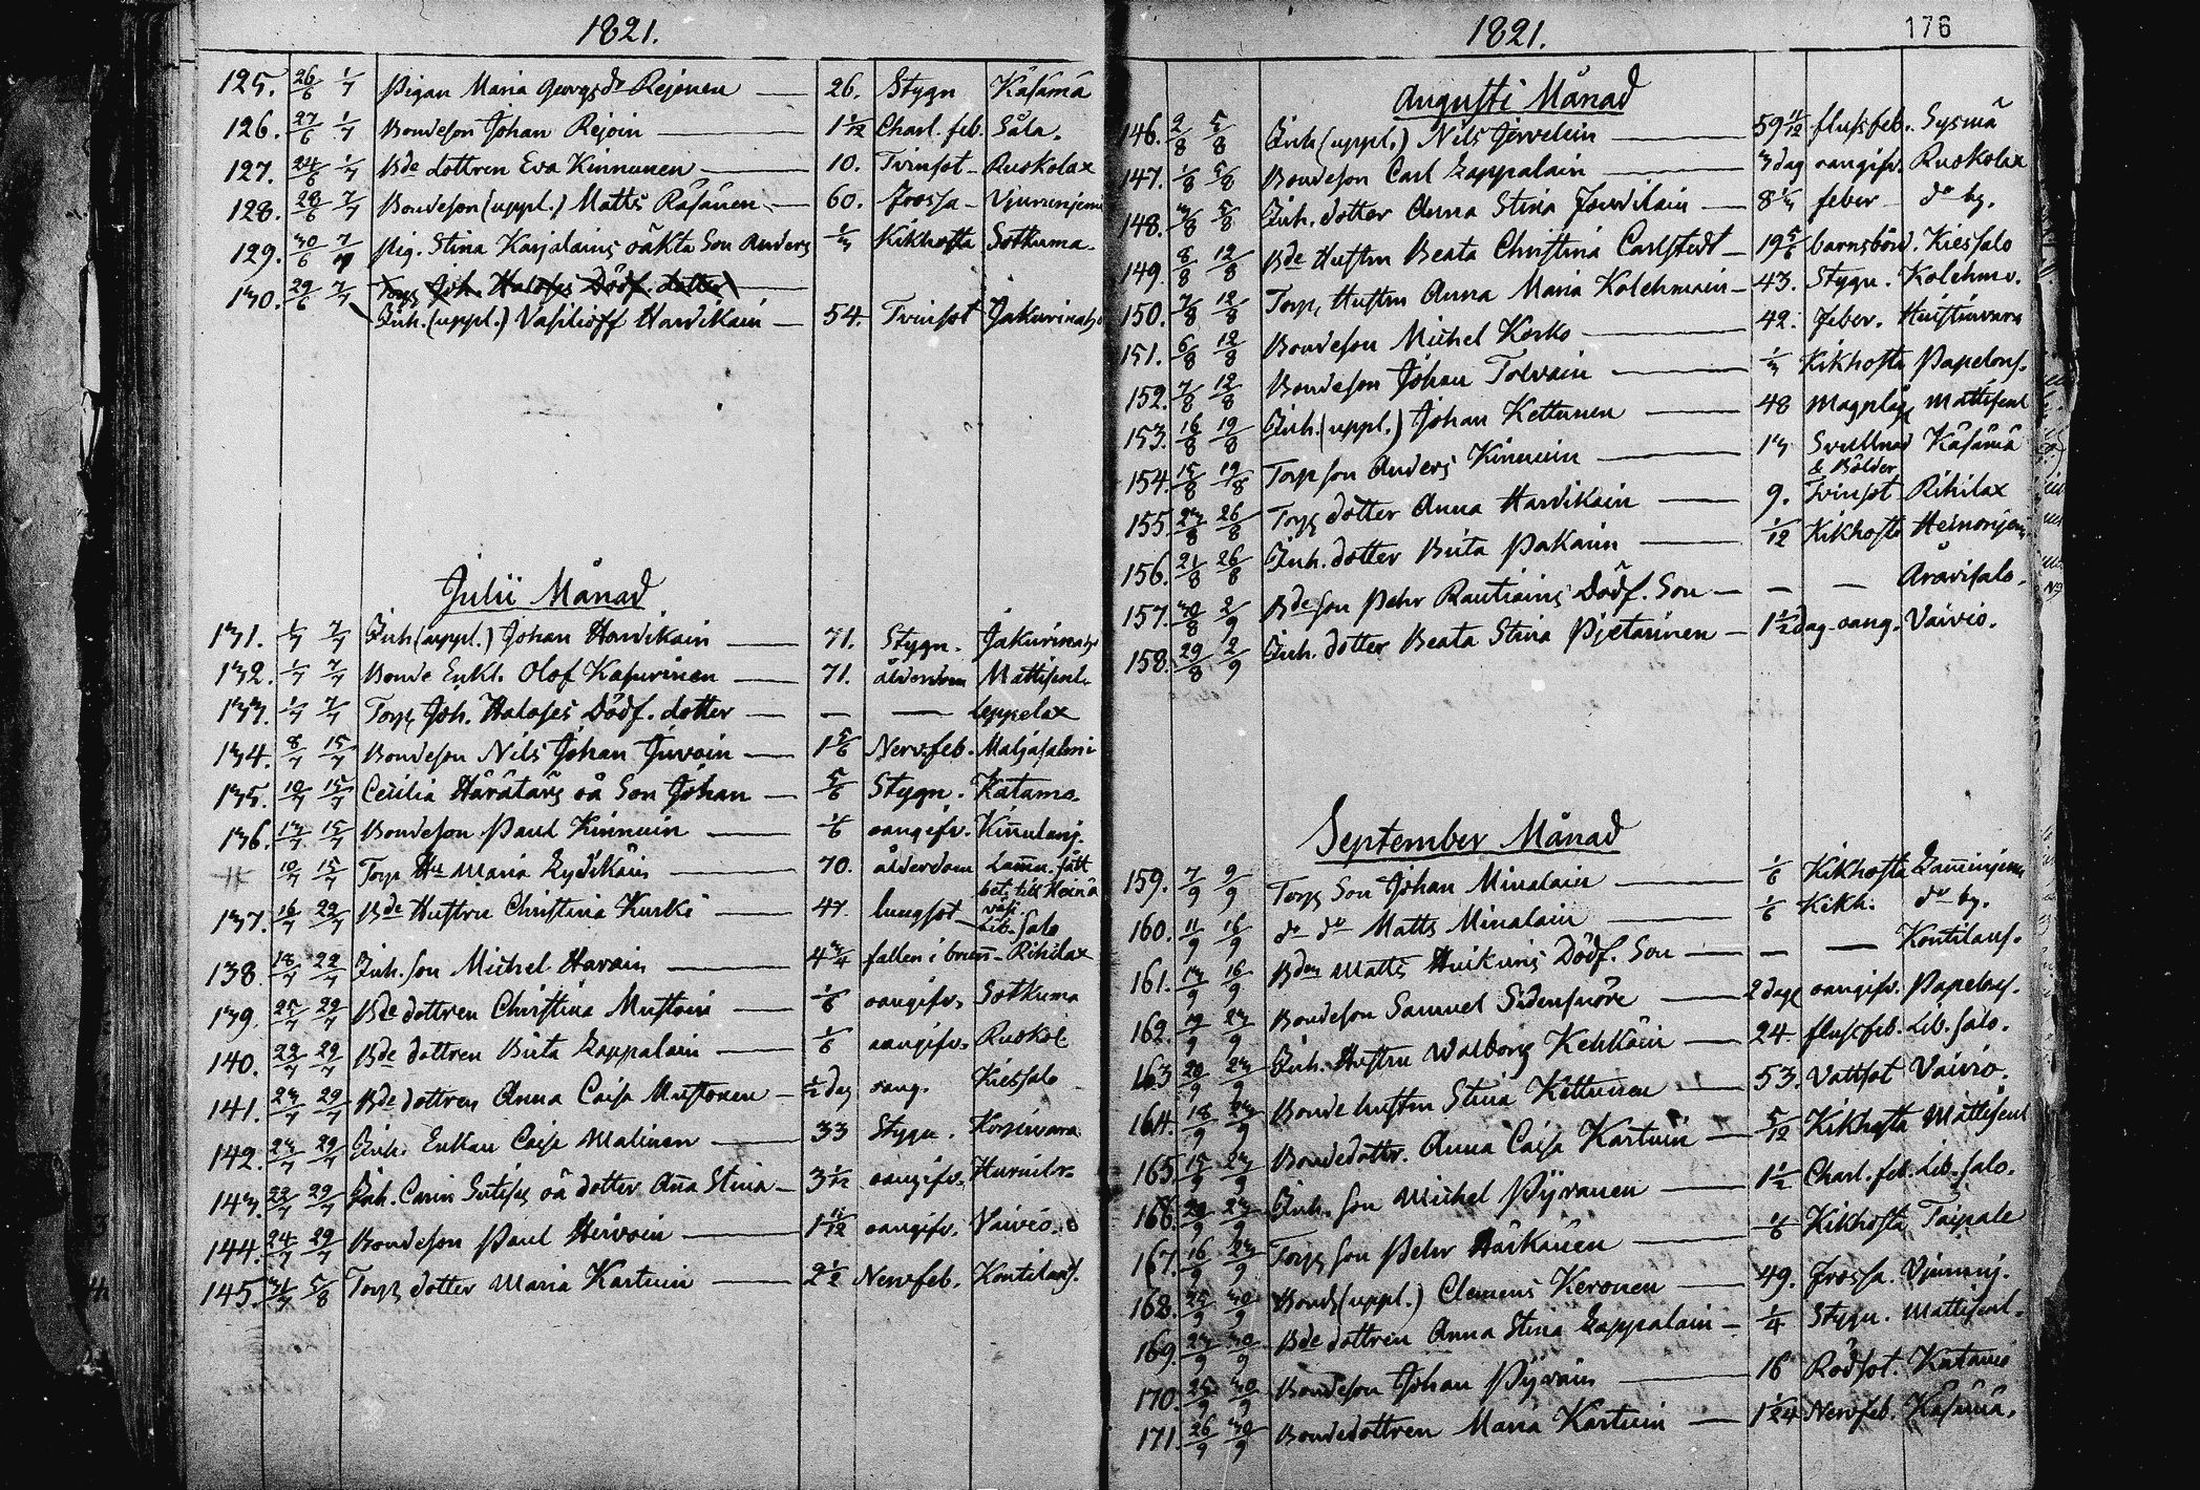 1821.
125. 26/6 1/7 Pigan Maria Georgsdr Rejonen — 26. Stygn Käsämä
126. 27/6 1/7 Bondeson Johan Rejoin — 1 1/12 Charl. feb. Såla.
127. 24/6 1/7 Bde dottren Eva Kinnunen — 10. Tvinsot Ruokolax
128. 28/6 7/7 Bondeson (uppl.) Matts Räsänen — 60. Frossa
129. 30/6 7/7 Pig. Stina Karjalains oäkta Son Anders 1/3 Kikhosta Sotkuma
130. 29/6 7/7 Torp. Joh. Haloses Dödf. dotter —
Inh. (uppl.) Vasilioff Harvikain — 54. Tvinsot
Julii Månad
131. 1/7 7/7 Inh (uppl.) Johan Harvikain — 71. Stygn.
132. 1/7 7/7 Bonde Enkl. Olof Kasurinen — 71. ålderdom Mattisenl.
133. 1/7 7/7 Torp. Joh. Haloses Dödf. dotter — — — Leppelax
134. 8/7 15/7 Bondeson Nils Johan Juvoin — 1 5/6 Nervfeb. Maljasalmi
135. 10/7 15/7 Cecilia oä Son Johan — 5/6 Stygn. Katama.
136. 13/7 15/7 Bondeson Paul Kinnuin — 1/6 oangifv.
10/7 15/7 Torp Hu Maria — 70. ålderdom fått
bet. till Heinä
137. 16/7 22/7 Bde Hustru Christina Kurki — 47. lungsot
Lib. salo
138. 18/7 22/7 Inh. son Michel Havain — 4 3/4 fallen i brunn Rihilax
139. 25/7 29/7 Bde dottren Christina Mustoin — 1/6 oangifv. Sotkuma
140. 22/7 29/7 Bde dottren Brita Lappalain — 1/6 oangifv. Ruokol
141. 23/7 29/7 Bde dottren Anna Caisa Mustonen — 1/2 dag oang. Kiessalo
142. 23/7 29/7 Inh. Enkan Caisa Malinen — 33 Stygn. Korsinvara
143. 22/7 29/7 Inh. Carin oä dotter Anna Stina — 3 1/2 oangifv.
144. 24/7 29/7 Bondeson Paul Hirvoin — 1 11/12 oangifv. Vaivio.
145. 31/7 5/8 Torp. dotter Maria Kartuin — 2 1/2 Nervfeb. Kontilaxs.
1821. 176
Augusti Månad
146. 2/8 5/8 Inh (uppl.) Nils Jervelein — 59 11/12 flussfeb. Sysmä
147. 1/8 5/8 Bondeson Carl Lappalain — 3 dag oangifv. Ruokolax
148. 3/8 5/8 Inh. dotter Anna Stina — 8 1/3 feber do by.
149. 8/8 12/8 Bde Hustru Beata Christina Carlstedt — 19 5/6 barnsbörd. Kiessalo
150. 7/8 12/8 Torp. Hustru Anna Maria Kolehmain — 43. Stygn. Kolehmo.
151. 6/8 12/8 Bondeson Michel Korko — 42. feber.
152. 7/8 12/8 Bondeson Johan Tolvain — 1/3 Kikhosta Papelons.
153. 16/8 19/8 Inh. (uppl.) Johan Kettunen — 48 Magplåg Mattisenl
154. 15/8 19/8 Torp son Anders Kinnuin — 13 Svullnad Käsämä
& Bölder
155. 23/8 26/8 Torp. dotter Anna Harvikain — 9. Tvinsot Rihilax
156. 21/8 26/8 Inh. dotter Brita Pakarin — 1/12 Kikhosta
157. 30/8 2/9 Bde son Pehr Rautiains Dödf. Son — — — Aravisalo.
158. 29/8 2/9 Inh. dotter Beata Stina Pjetarinen — 1 1/2 dag oang. Vaivio.
September Månad
159. 7/9 9/9 Torp. Son Johan Minalain — 1/6 Kikhosta
160. 11/9 16/9 do do Matts Minalain — 1/6 Kikh. do by.
161. 13/9 16/9 Matts Dödf. Son — — — Kontilaxs.
162. 19/9 23/9 Bondeson Samuel Sidensnöre — 2 dage oangifv. Papelons.
163 20/9 23/9 Inh. Hustru Walborg — 24. flussfeb. Lib. salo.
164. 18/9 23/9 Bonde hustru Stina Kettunen — 53. Vattsot Vaivio.
165 15/9 23/9 Bondedottr. Anna Caisa Kartuin — 5/12 Kikhosta Mattisenl
168. 20/9 23/9 Inh. son Michel Pyvänen — 1 1/2 Charl. feb. Lib. salo.
167. 16/9 23/9 Torp. son Pehr Härkänen — 1/6 Kikhosta Taipale
168. 25/9 30/9 Bond. (uppl.) Clemens Keronen — 49. frossa.
169. 23/9 30/9 Bde dottren Anna Stina Lappalain — 1/4 Stygn. Mattisenl.
170. 25/9 30/9 Bondeson Johan — 16 Rödsot. Katamo
171. 26/9 30/9 Bondedottren Maria Kartuin — 1 1/24 Nervfeb. Käsämä.